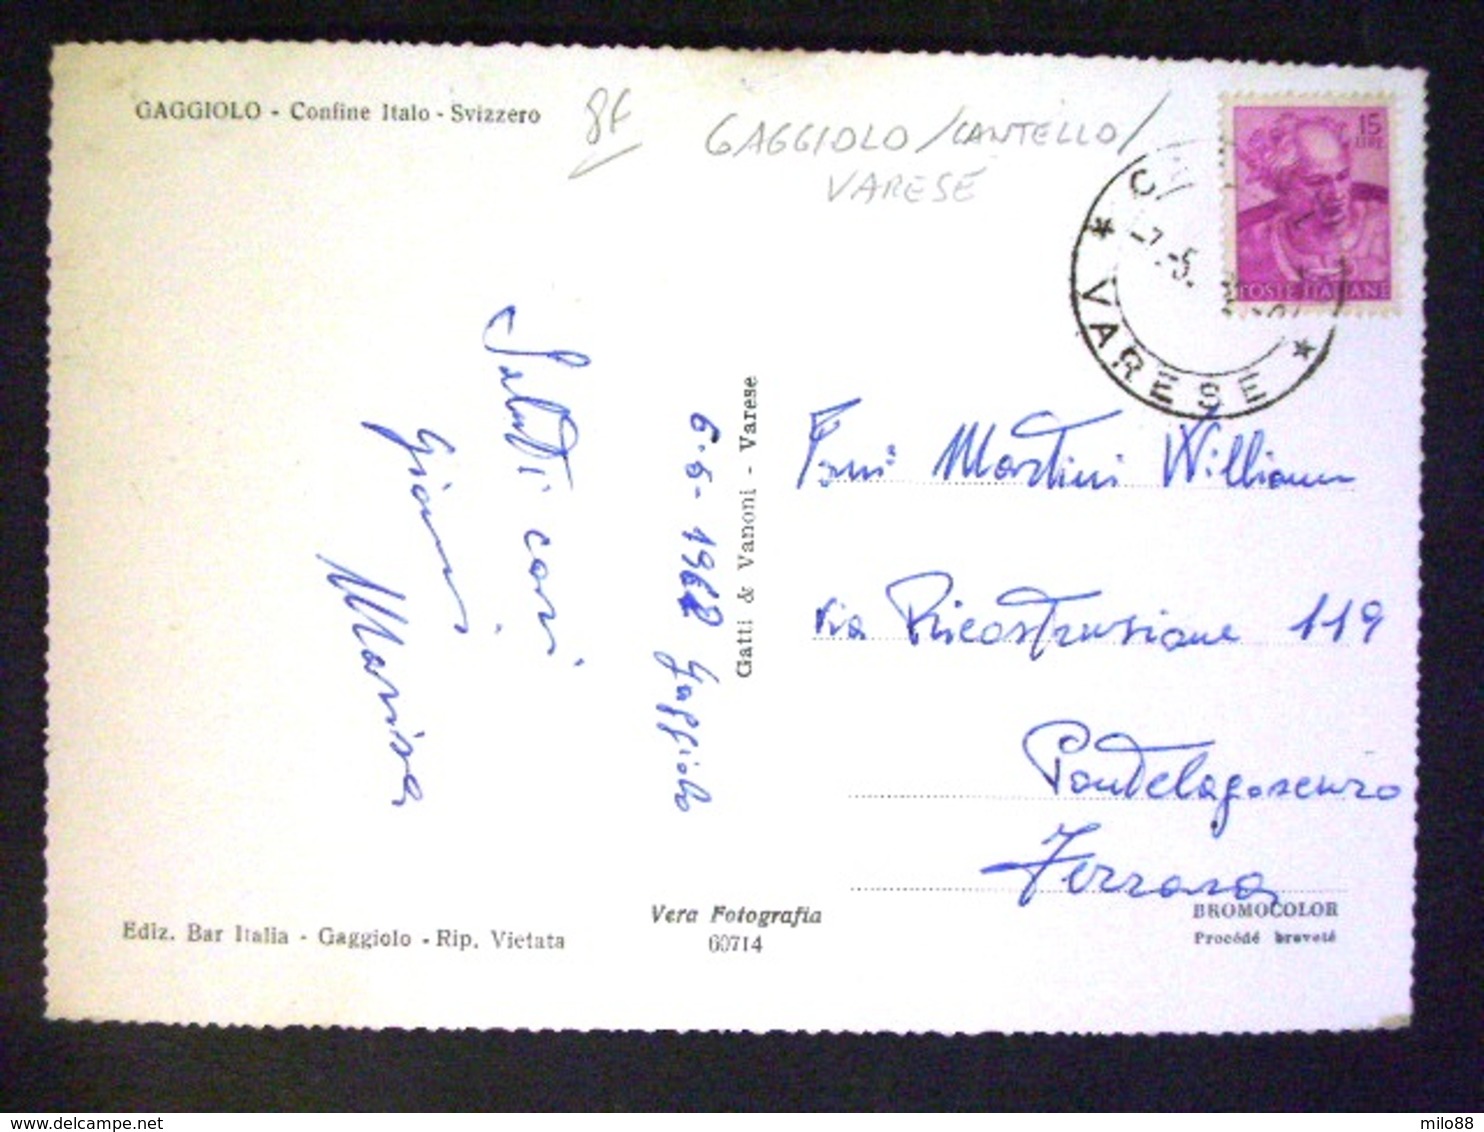 GAGGIOLO - Confine Italo - Svizzero
8€
GAGGIOLO/CANTELLO/
VARESE
15
LIRE
POSTE ITALIANE
* VARESE *
-7.-5.
Saluti cari
Gianni
Marisa
6-5-1962 Gaggiolo
Gatti & Vanoni - Varese
Martini William
via Ricostruzione 119
Pontelagoscuro
Ferrara
Vera Fotografia
60714
BROMOCOLOR
Procédé breveté
Ediz. Bar Italia - Gaggiolo - Rip. Vietata
milo88